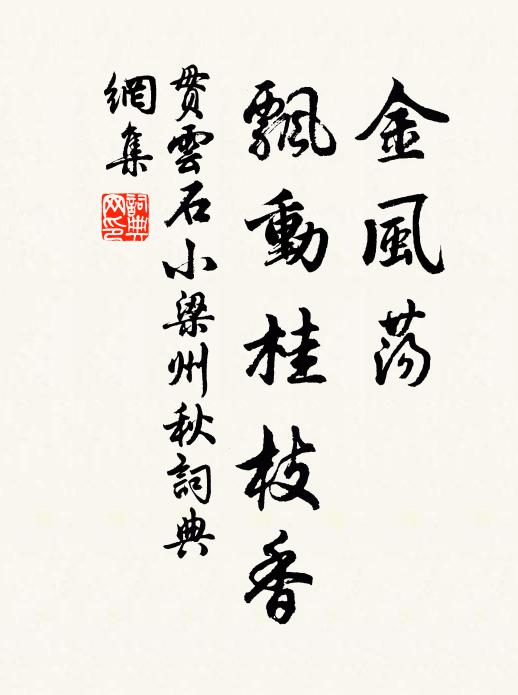 金風蕩
飄動桂枝香
貫雲石小梁州秋詞典
網集
詞典
网印